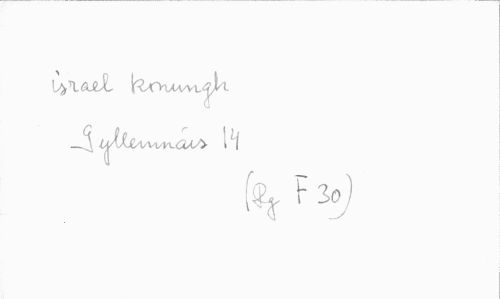 israel konungh
Gyllemnäis 14
(Rg F 30)